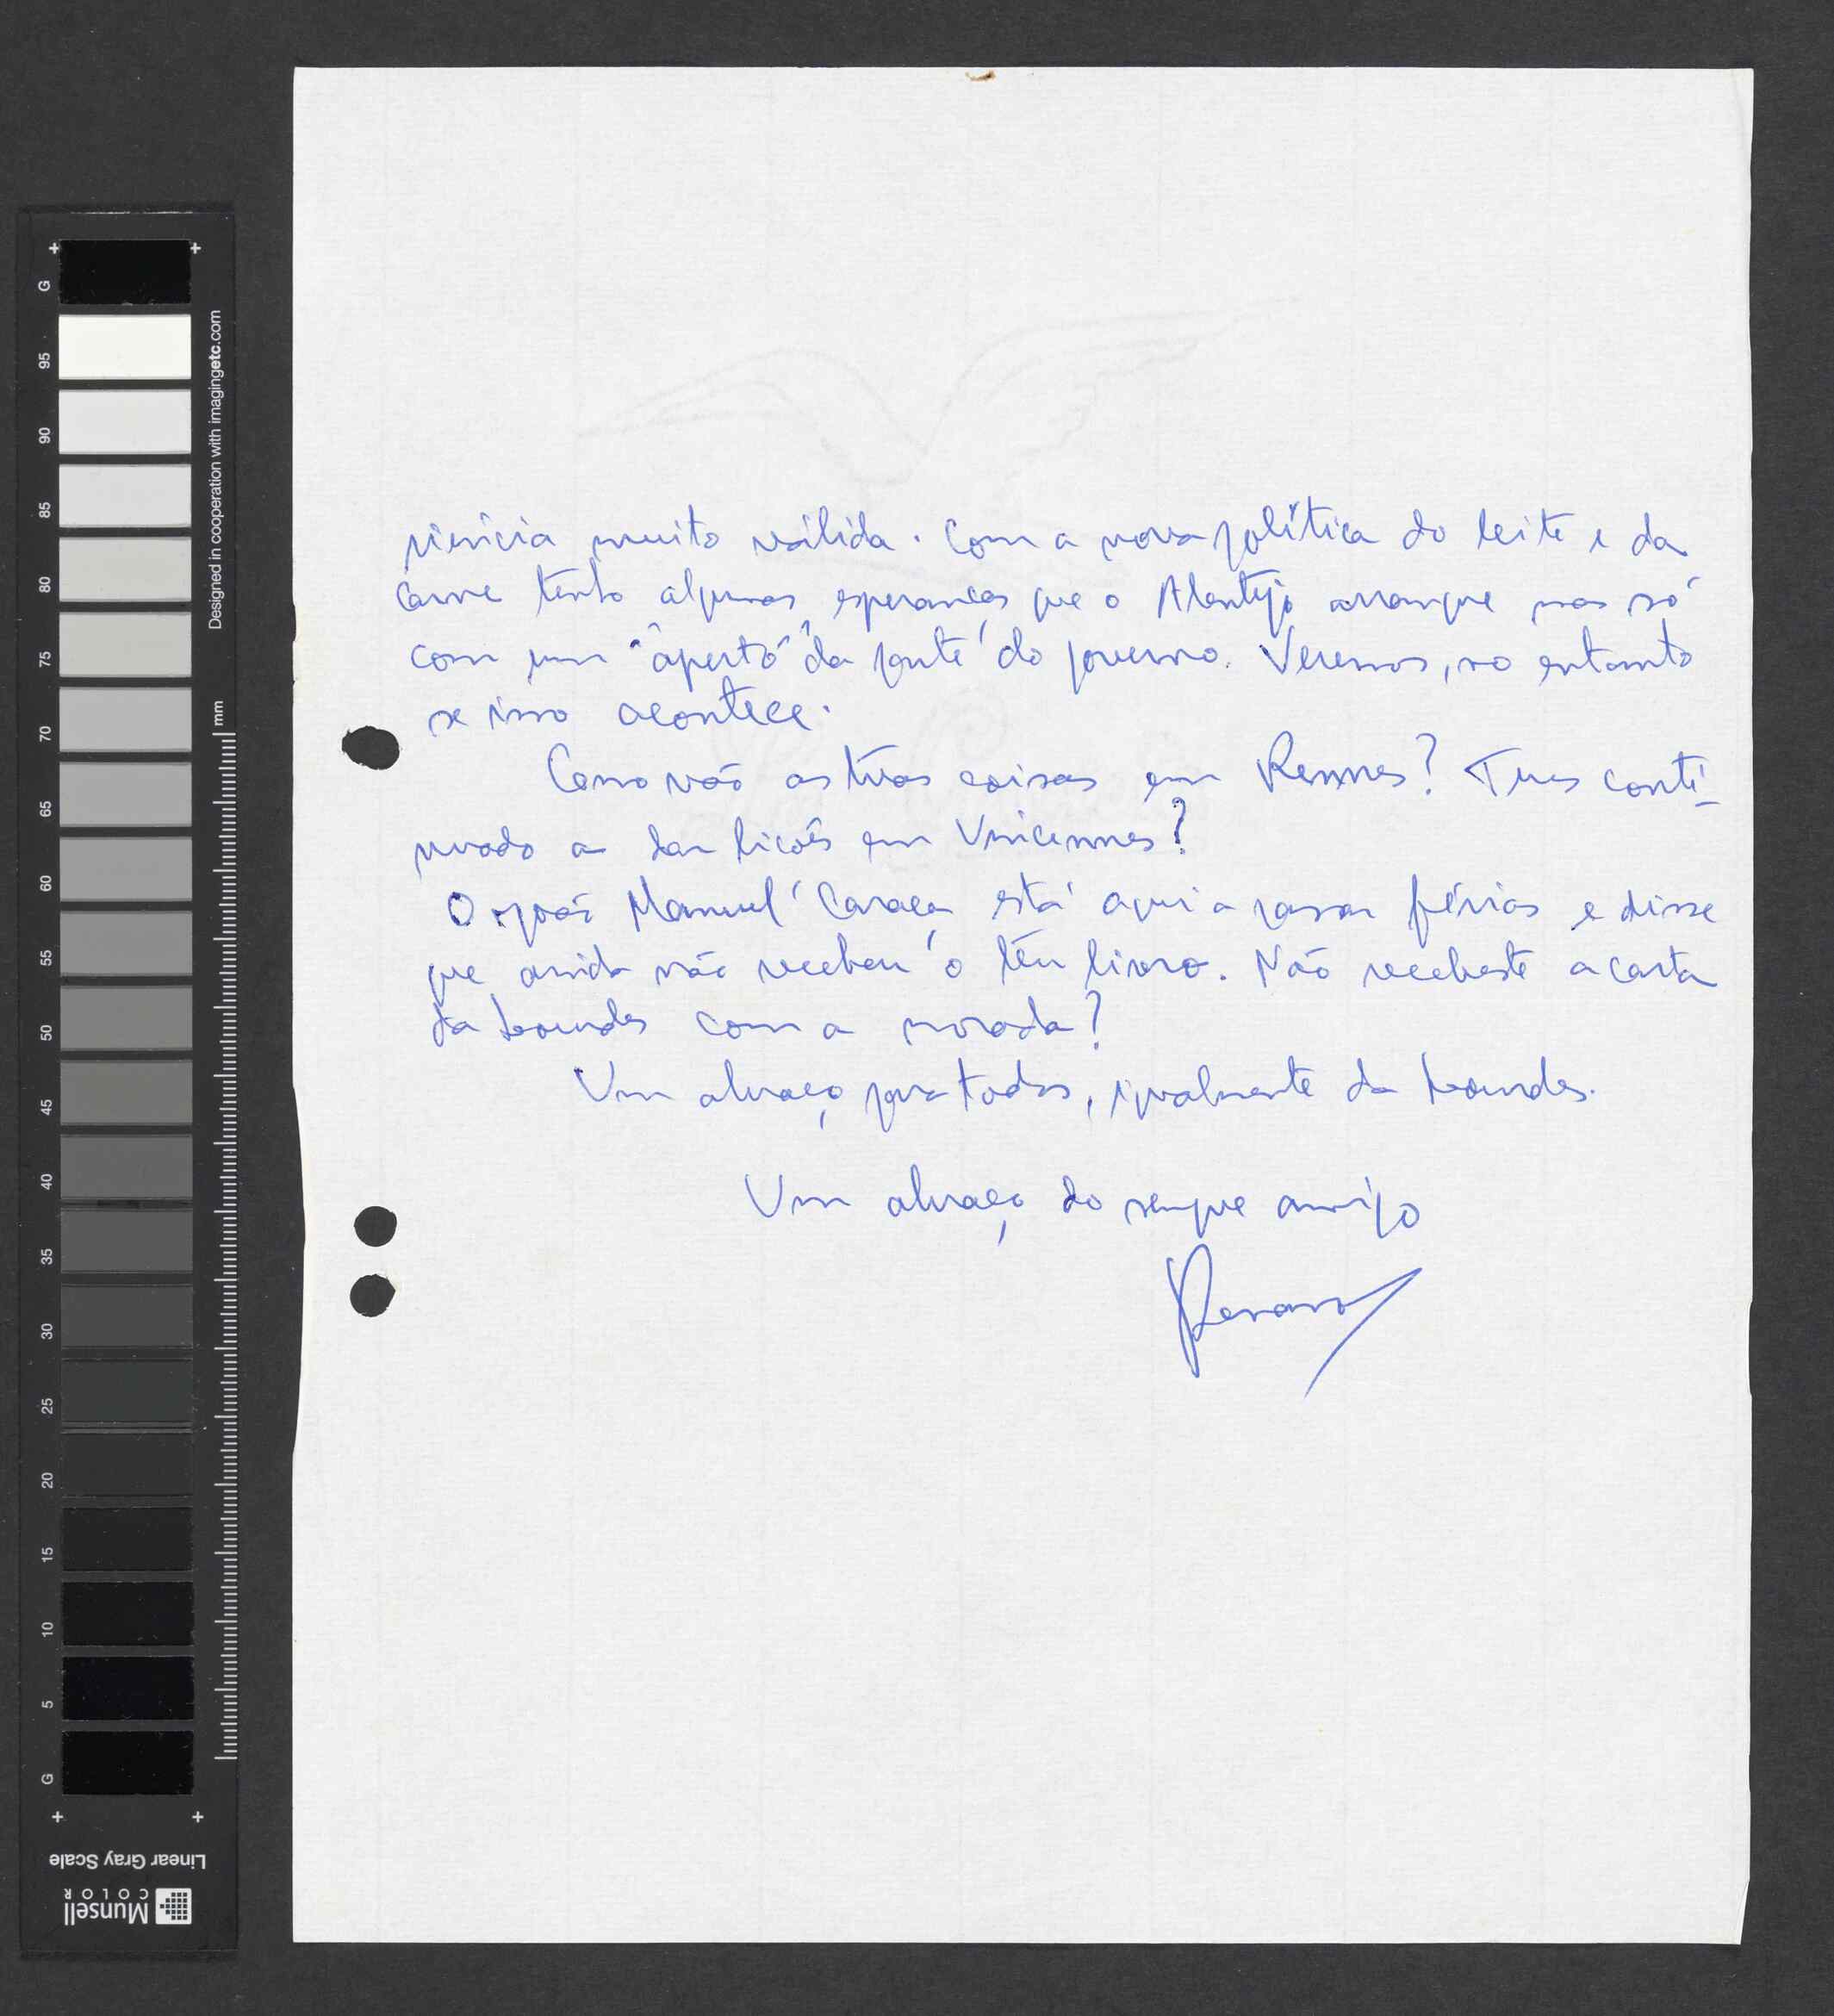 riência muito válida. Com a nova política do leite e da
carne tenho algumas esperanças que o Alentejo arranque mas só
com um "aperto" da parte do governo. Veremos, no entanto
se isso acontece.
Como vão as tuas coisas em Rennes? Tens conti-
nuado a dar lições em Vincennes?
O João Manuel Caraça está aqui a passar férias e disse
que ainda não recebeu o teu livro. Não recebeste a carta
da Lourdes com a morada?
Um abraço para todos, igualmente da Lourdes.
Um abraço do sempre amigo
G 95 90 85 80 75 70 65 60 55 50 45 40 35 30 25 20 15 10 5 G
Designed in cooperation with imagingetc.com
mm
Linear Gray Scale
Munsell
COLOR